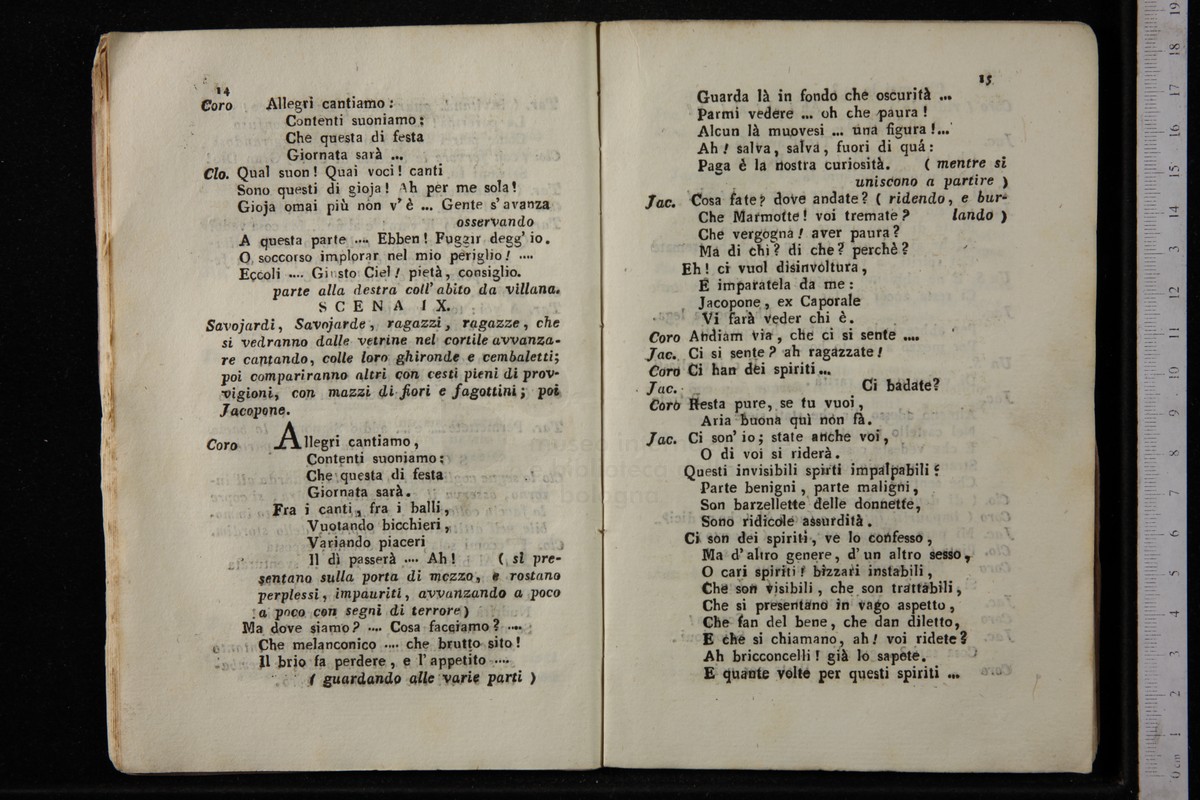 14
Coro Allegri cantiamo:
Contenti suoniamo:
Che questa di festa
Giornata sarà ...
Clo. Qual suon! Quai voci! canti
Sono questi di gioja! Ah per me sola!
Gioja omai più non v'è ... Gente s'avanza
osservando
A questa parte .... Ebben! Fuggir degg'io.
O soccorso implorar nel mio periglio! ....
Eccoli .... Giusto Ciel! pietà, consiglio.
parte alla destra coll'abito da villana.
SCENA IX.
Savojardi, Savojarde, ragazzi, ragazze, che
si vedranno dalle vetrine nel cortile avvanza-
re cantando, colle loro ghironde e cembaletti;
poi compariranno altri con cesti pieni di prov-
vigioni, con mazzi di fiori e fagottini; poi
Jacopone.
Coro Allegri cantiamo,
Contenti suoniamo:
Che questa di festa
Giornata sarà.
Fra i canti, fra i balli,
Vuotando bicchieri,
Variando piaceri
Il dì passerà .... Ah! (si pre-
sentano sulla porta di mezzo, e rostano
perplessi, impauriti, avvanzando a poco
a poco con segni di terrore)
Ma dove siamo? .... Cosa facciamo? ....
Che melanconico .... che brutto sito!
Il brio fa perdere, e l'appetito ....
(guardando alle varie parti)
15
Guarda là in fondo che oscurità ...
Parmi vedere ... oh che paura!
Alcun là muovesi ... una figura!...
Ah! salva, salva, fuori di quá:
Paga è la nostra curiosità. (mentre si
uniscono a partire)
Jac. Cosa fate? dove andate? (ridendo, e bur-
Che Marmotte! voi tremate? lando)
Che vergogna! aver paura?
Ma di chi? di che? perchè?
Eh! ci vuol disinvoltura,
E imparatela da me:
Jacopone, ex Caporale
Vi farà veder chi è.
Coro Andiam via, che ci si sente ....
Jac. Ci si sente? ah ragazzate!
Coro Ci han dei spiriti...
Jac. Ci badate?
Coro Resta pure, se tu vuoi,
Aria buona quì non fà.
Jac. Ci son'io; state anche voi,
O di voi si riderà.
Questi invisibili spirti impalpabili:
Parte benigni, parte maligni,
Son barzellette delle donnette,
Sono ridicole assurdità.
Ci son dei spiriti, ve lo confesso,
Ma d'altro genere, d'un altro sesso,
O cari spiriti! bizzari instabili,
Che son visibili, che son trattabili,
Che si presentano in vago aspetto,
Che fan del bene, che dan diletto,
E che si chiamano, ah! voi ridete?
Ah bricconcelli! già lo sapete.
E quante volte per questi spiriti ...